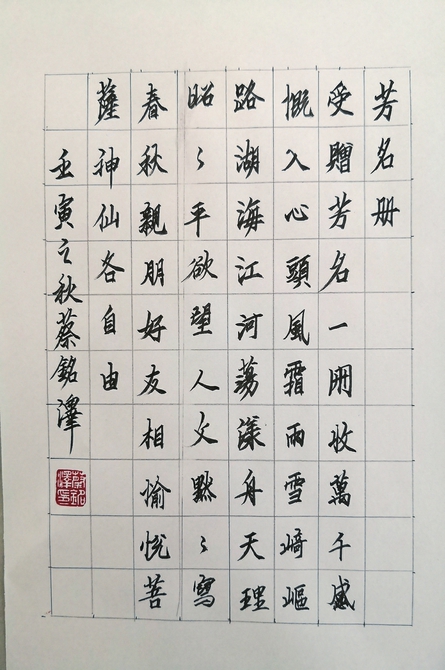 芳名册
受贈芳名一冊收萬千感
慨入心頭風霜雨雪崎嶇
路湖海江河蕩漾舟天理
昭〻平欲望人文默〻寫
春秋親朋好友相愉悅菩
薩神仙各自由
壬寅之秋蔡銘澤